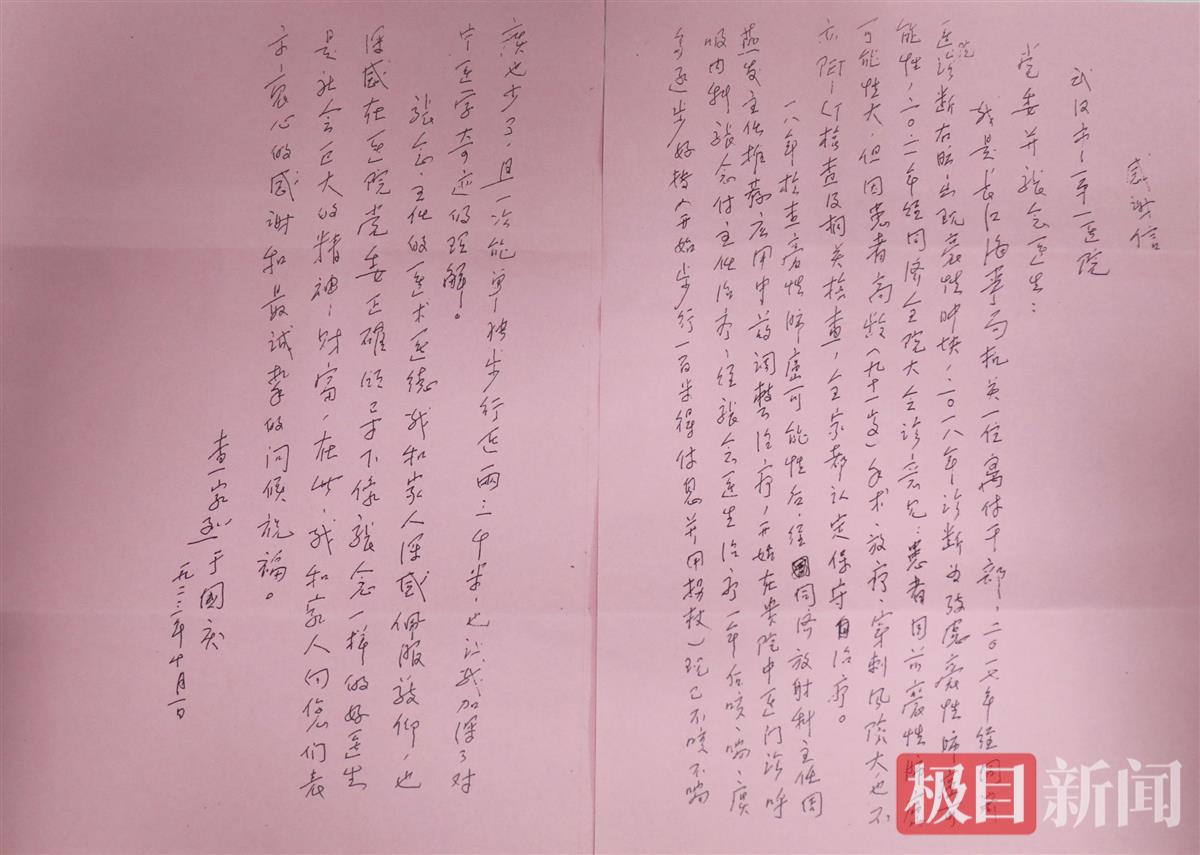 感谢信
武汉市第一医院
党委并张念医生：
我是长江海事局机关一位离休干部，二〇一七年经同济
医院诊断右肺出现囊性肿块，二〇一八年诊断为考虑囊性肺癌可
能性，二〇二一年经同济全院大会诊意见：患者目前囊性肺癌
可能性大，但因患者高龄（九十一岁）手术、放疗、穿刺风险大，也不
亦PET-CT检查及相关检查，全家都认定保守治疗。
一八年检查囊性肺癌可能性后，经同济放射科主任周
燕发主任推荐应用中药调整治疗，开始在贵院中医门诊呼
吸内科张念付主任治疗，经张念医生治疗一年后咳、喘、痰
多逐步好转（开始步行一百米得休息并用拐杖）现已不咳不喘
痰也少了，且一次能单独步行近两三千米，也让我加深了对
中医学奇迹的理解。
张念主任的医术医德我和家人深感佩服敬仰，也
深感在医院党委正确领导下像张念一样的好医生
是社会巨大的精神财富，在此，我和家人向您们表
示衷心的感谢和最诚挚的问候祝福。
查家烈于国庆
二〇二二年十月一日
极目新闻